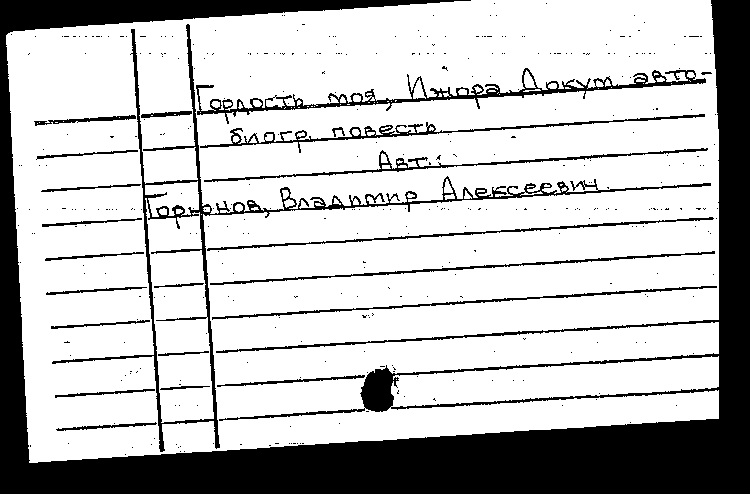 Гордость моя, Ижора. Докум. авто-
биогр. повесть.
Авт.:
Горюнов, Владимир Алексеевич.